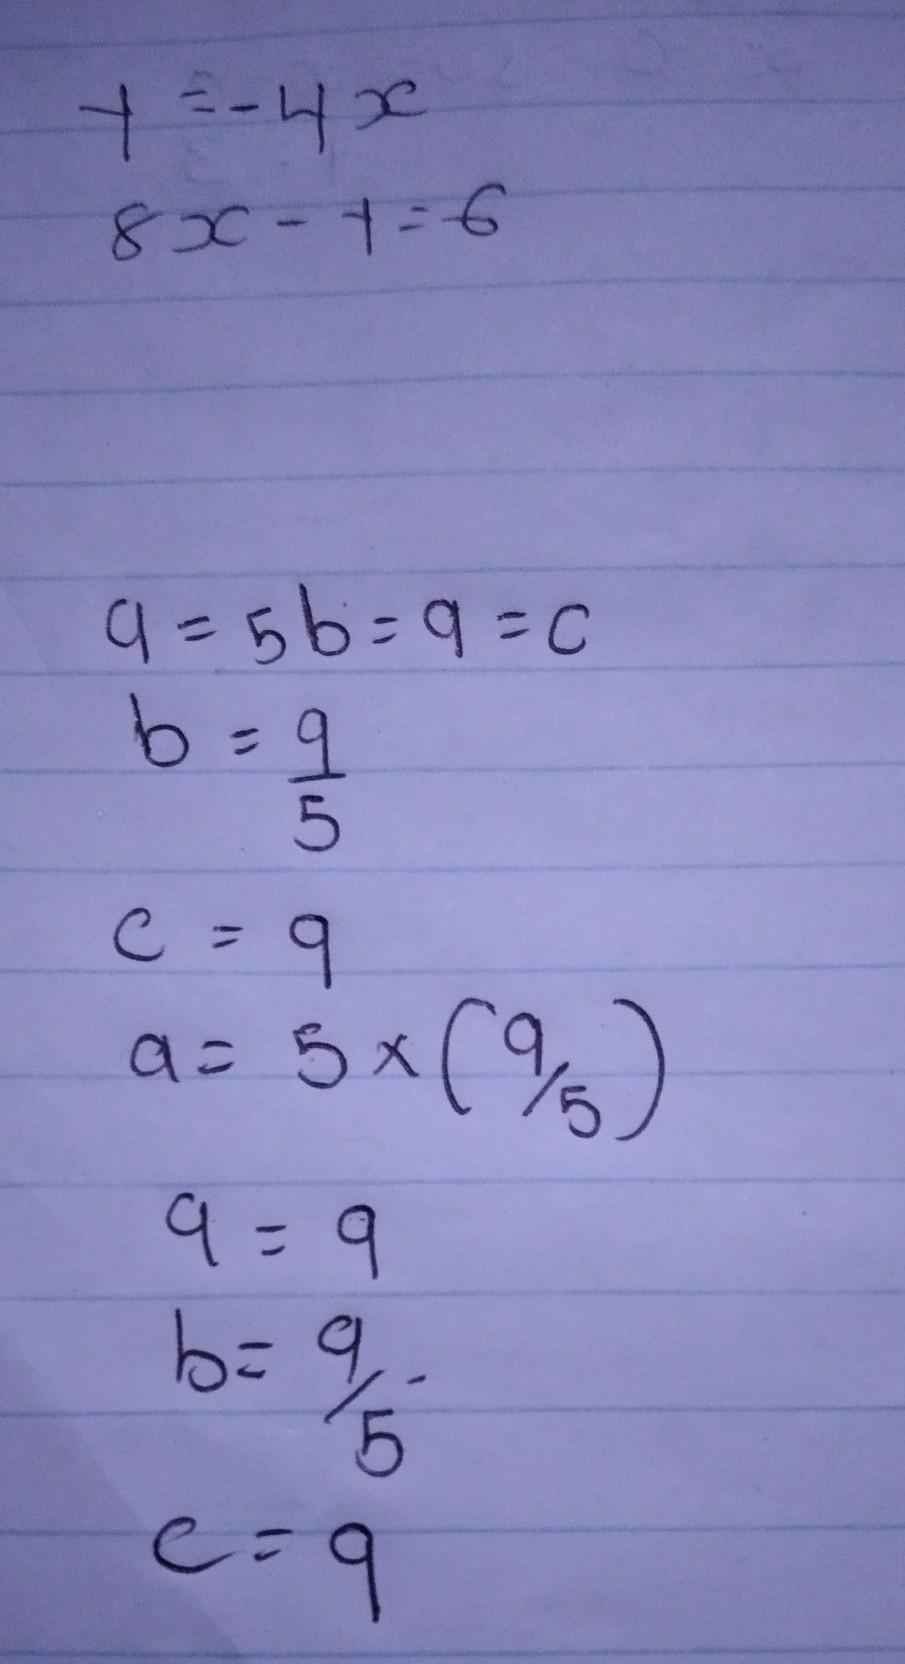 y = -4x
8x - y = 6
a = 5b = 9 = c
b = 9/5
c = 9
a = 5 x (9/5)
a = 9
b = 9/5
c = 9